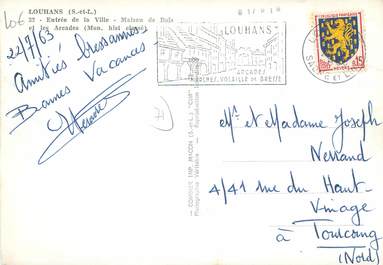 LOUHANS (S.-et-L.)
37 - Entrée de la Ville - Maison de Bois
et les Arcades (Mon. hist. classé)
22/7/63
Amitiés bressannes
Bonnes Vacances
LOUHANS
ARCADES
VOLAILLE DE BRESSE
COMBIER IMP. MACON (S.-et-L.) "CIM"
Photographie Véritable
0,15
Mr et Madame Joseph
Nerrand
4/41 rue du Haut-
Vinage
à Tourcoing
(Nord)